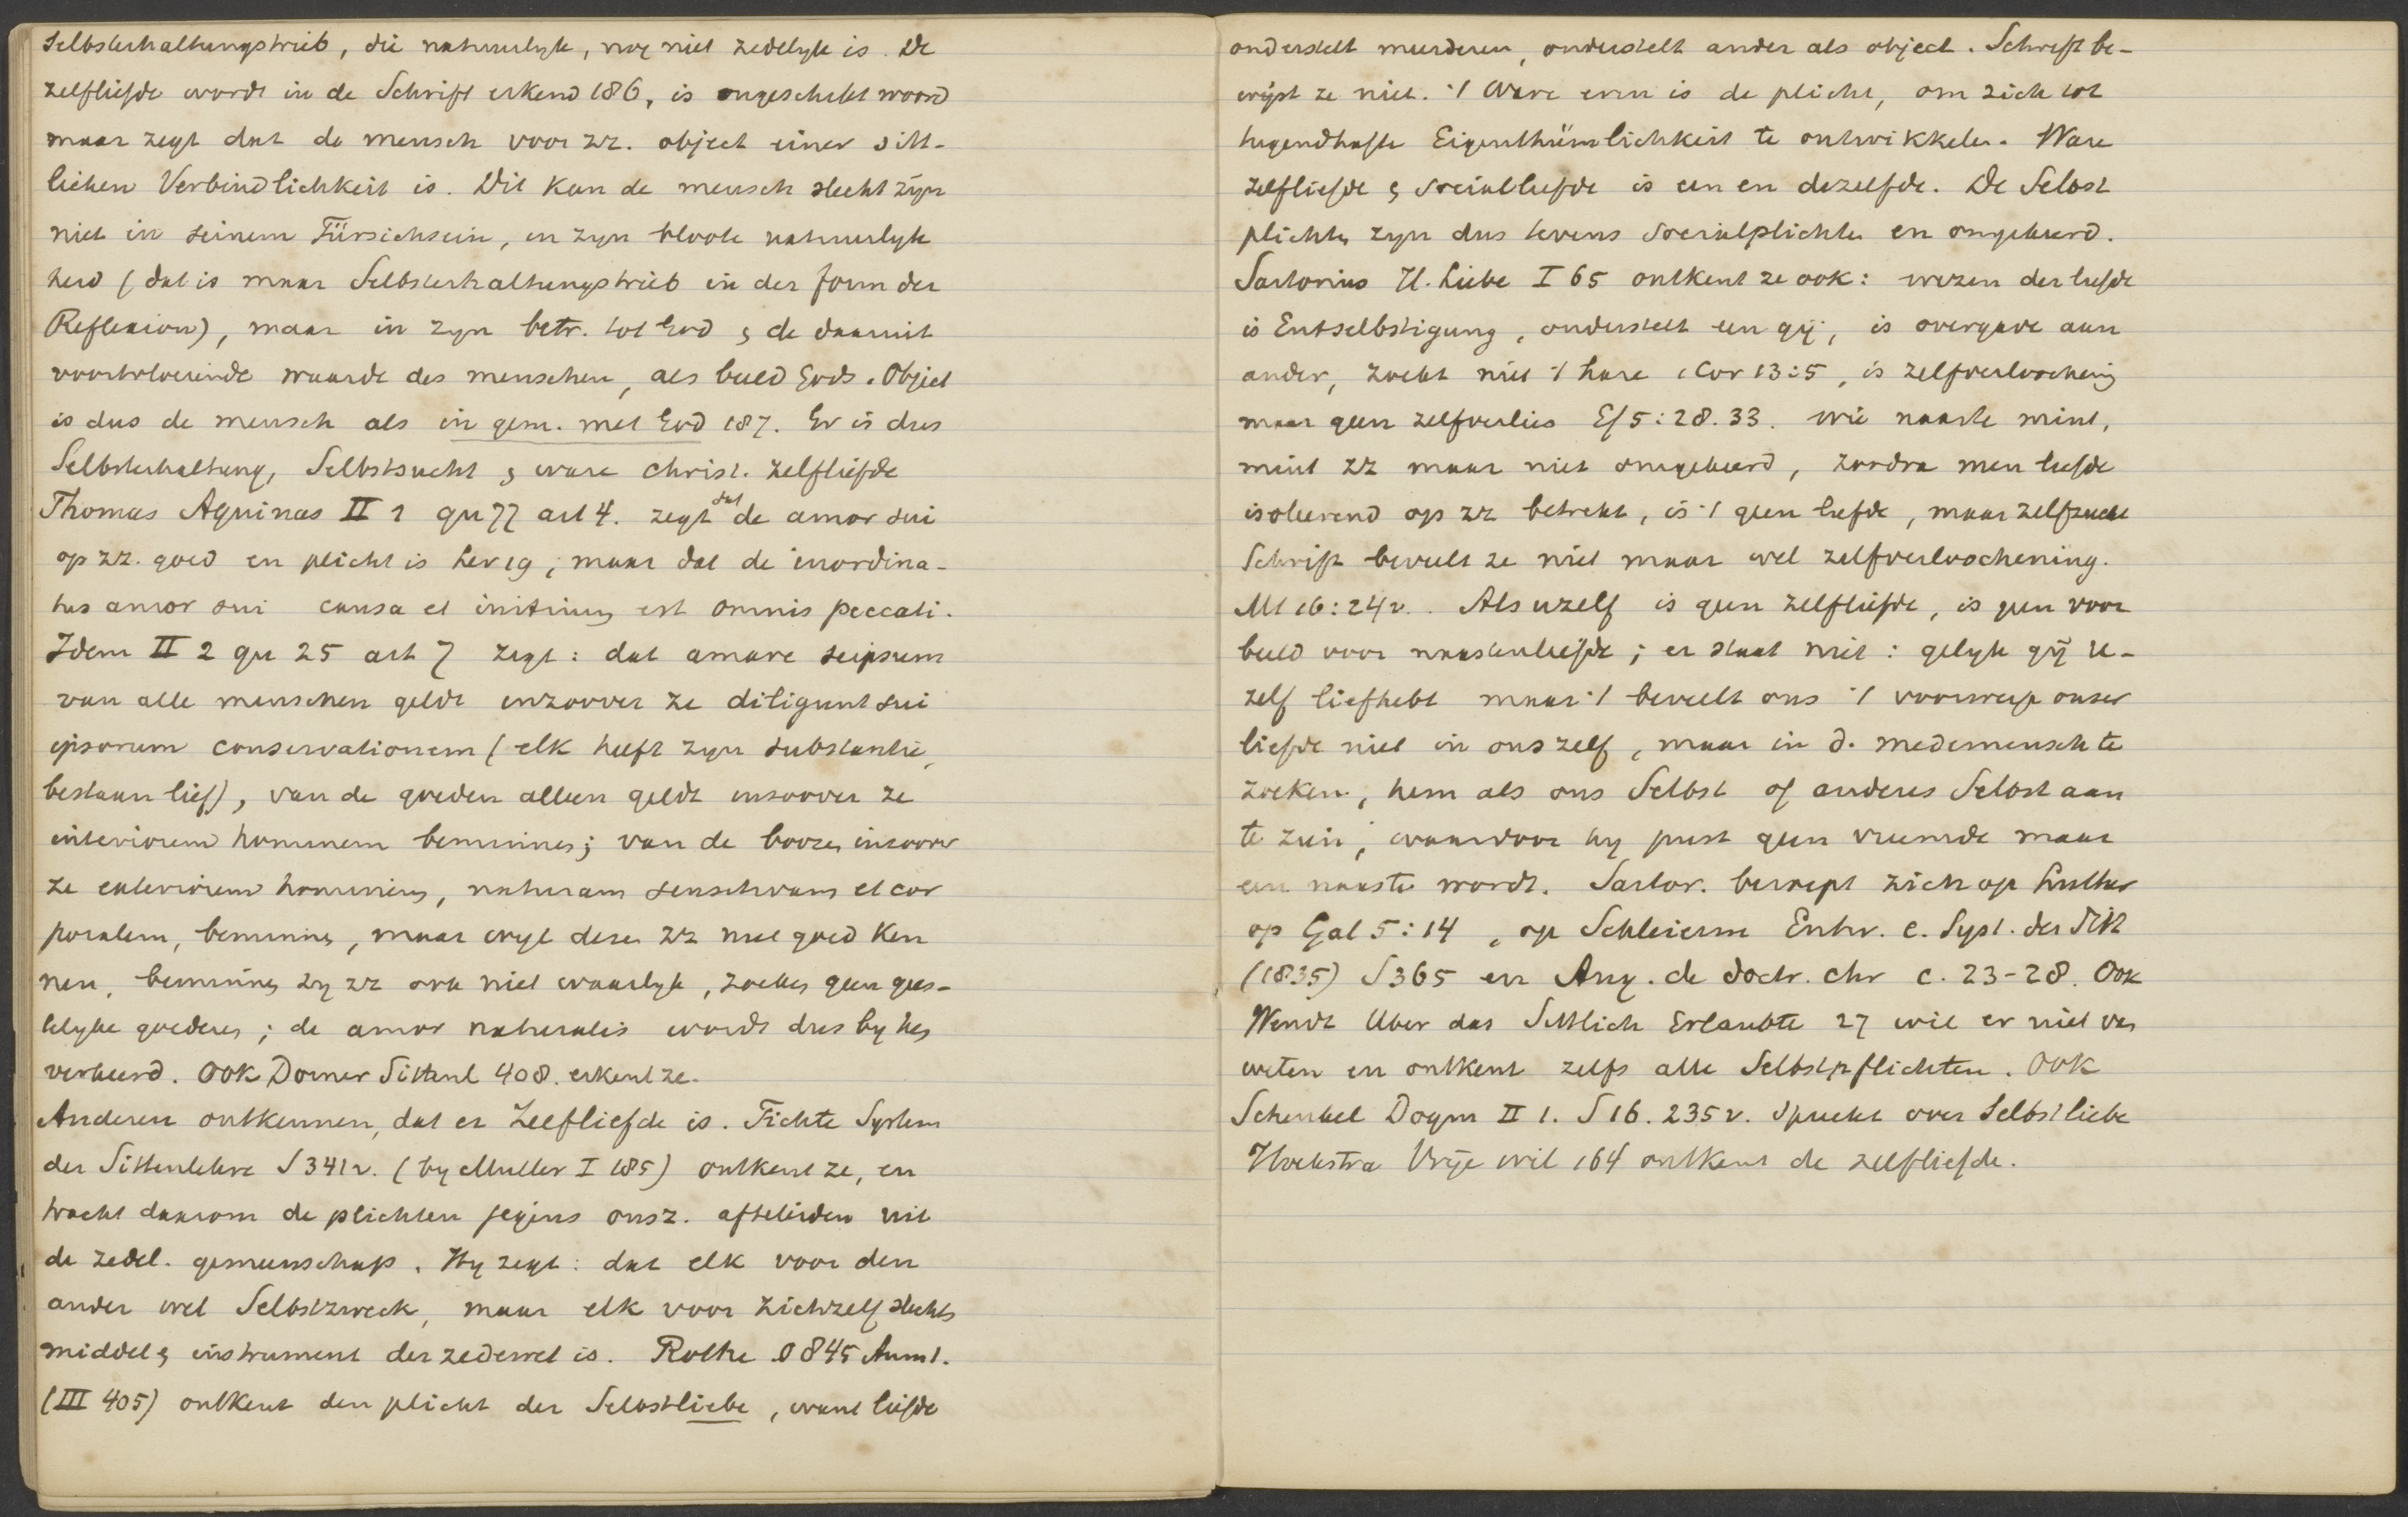 Selbsterhaltungstrieb, die natuurlyk, nog niet zedelyk is. De
zelfliefde wordt in de Schrift erkend 186, is ongeschikt woord
maar zegt dat de mensch voor zz. object einer sitt-
lichen Verbindlichkeit is. Dit kan de mensch slecht zijn
niet in seinem Fürsichsein, in zyn bloote natuurlyk
heid (dat is maar Selbsterhaltungstrieb in der form der
Reflexion), maar in zyn betr. tot God & de daaruit
voortvloeiende waarde des menschen, als beeld Gods. Object
is dus de mensch als in gem. met God 187. Er is dus
Selbsterhaltung, Selbstsucht & ware christ. zelfliefde
Thomas Aquinas II 1 qu 77 art 4. zegt dat de amor sui
op zz. goed en plicht is Lev 19; maar dat de inordina-
tus amor sui causa et initium est omnis peccati.
Idem II 2 qu 25 art 7 zegt: dat amare seipsum
van alle menschen geldt inzoover ze diligunt sui
ipsorum conservationem (elk heeft zyn substantie,
bestaan lief), van de goeden alleen geldt insoover ze
interiorem hominem beminnen; van de boozen insoover
ze exteriorem hominem, naturam sensitivam et cor
poralem, beminnen, maar wyl dezen zz niet goed ken
nen, beminnen zy zz ook niet waarlyk, zoeken geen gees-
telyke goederen; de amor naturalis wordt dus by hen
verkeerd. Ook Dorner Sittenl 408. erkent ze.
Anderen ontkennen, dat er Zelfliefde is. Fichte System
der Sittenlehre S 341v. (by Muller I 185) ontkent ze, en
tracht daarom de plichten jegens onsz. afteleiden uit
de zedel. gemeenschap. Hy zegt: dat elk voor den
ander wel Selbstzweck, maar elk voor zichzelf slechts
middel & instrument der zedewet is. Rothe § 845 Anm 1.
(III 405) ontkent den plicht der Selbstliebe, want liefde
onderstelt meerderen, onderstelt ander als object. Schrift be-
wijst ze niet. 't Ware erin is de plicht, om zich tot
tugendhafte Eigenthümlichkeit te ontwikkelen. Ware
zelfliefde & sociaalliefde is een en dezelfde. De Selbst
plichten zyn dus tevens Socialplichten en omgekeerd.
Sartorius H. Liebe I 65 ontkent ze ook: wezen der liefde
is Entselbstigung, onderstelt een gij, is overgave aan
ander, zoekt niet 't hare 1 Cor 13:5, is zelfverloochening
maar geen zelfverlies Ef 5:28.33. wie naaste mint,
mint zz maar niet omgekeerd, zoodra men liefde
isoleerend op zz betrekt, is 't geen liefde, maar zelfzucht
Schrift beveelt ze niet maar wel zelfverloochening.
Mt 16:24v. Als uzelf is geen zelfliefde, is geen voor
beeld voor naastenliefde; er staat niet: gelyk gij u-
zelf liefhebt maar 't beveelt ons 't voorwerp onser
liefde niet in ons zelf, maar in d. medemensch te
zoeken, hem als ons Selbst of anderes Selbst aan
te zien, waardoor hy juist geen vreemde maar
een naaste wordt. Sartor. beroept zich op Luther
op Gal 5:14, op Schleierm Entw. e. Syst. der Sitt
(1835) S 365 en Aug. de doctr. chr c. 23-28. Ook
Wendt Uber das Sittlich Erlaubte 27 wil er niet van
weten en ontkent zelfs alle Selbstpflichten. Ook
Schenkel Dogm II 1. S 16. 235v. spreekt over Selbstliebe
Hoekstra Vrije wil 164 ontkent de zelfliefde.